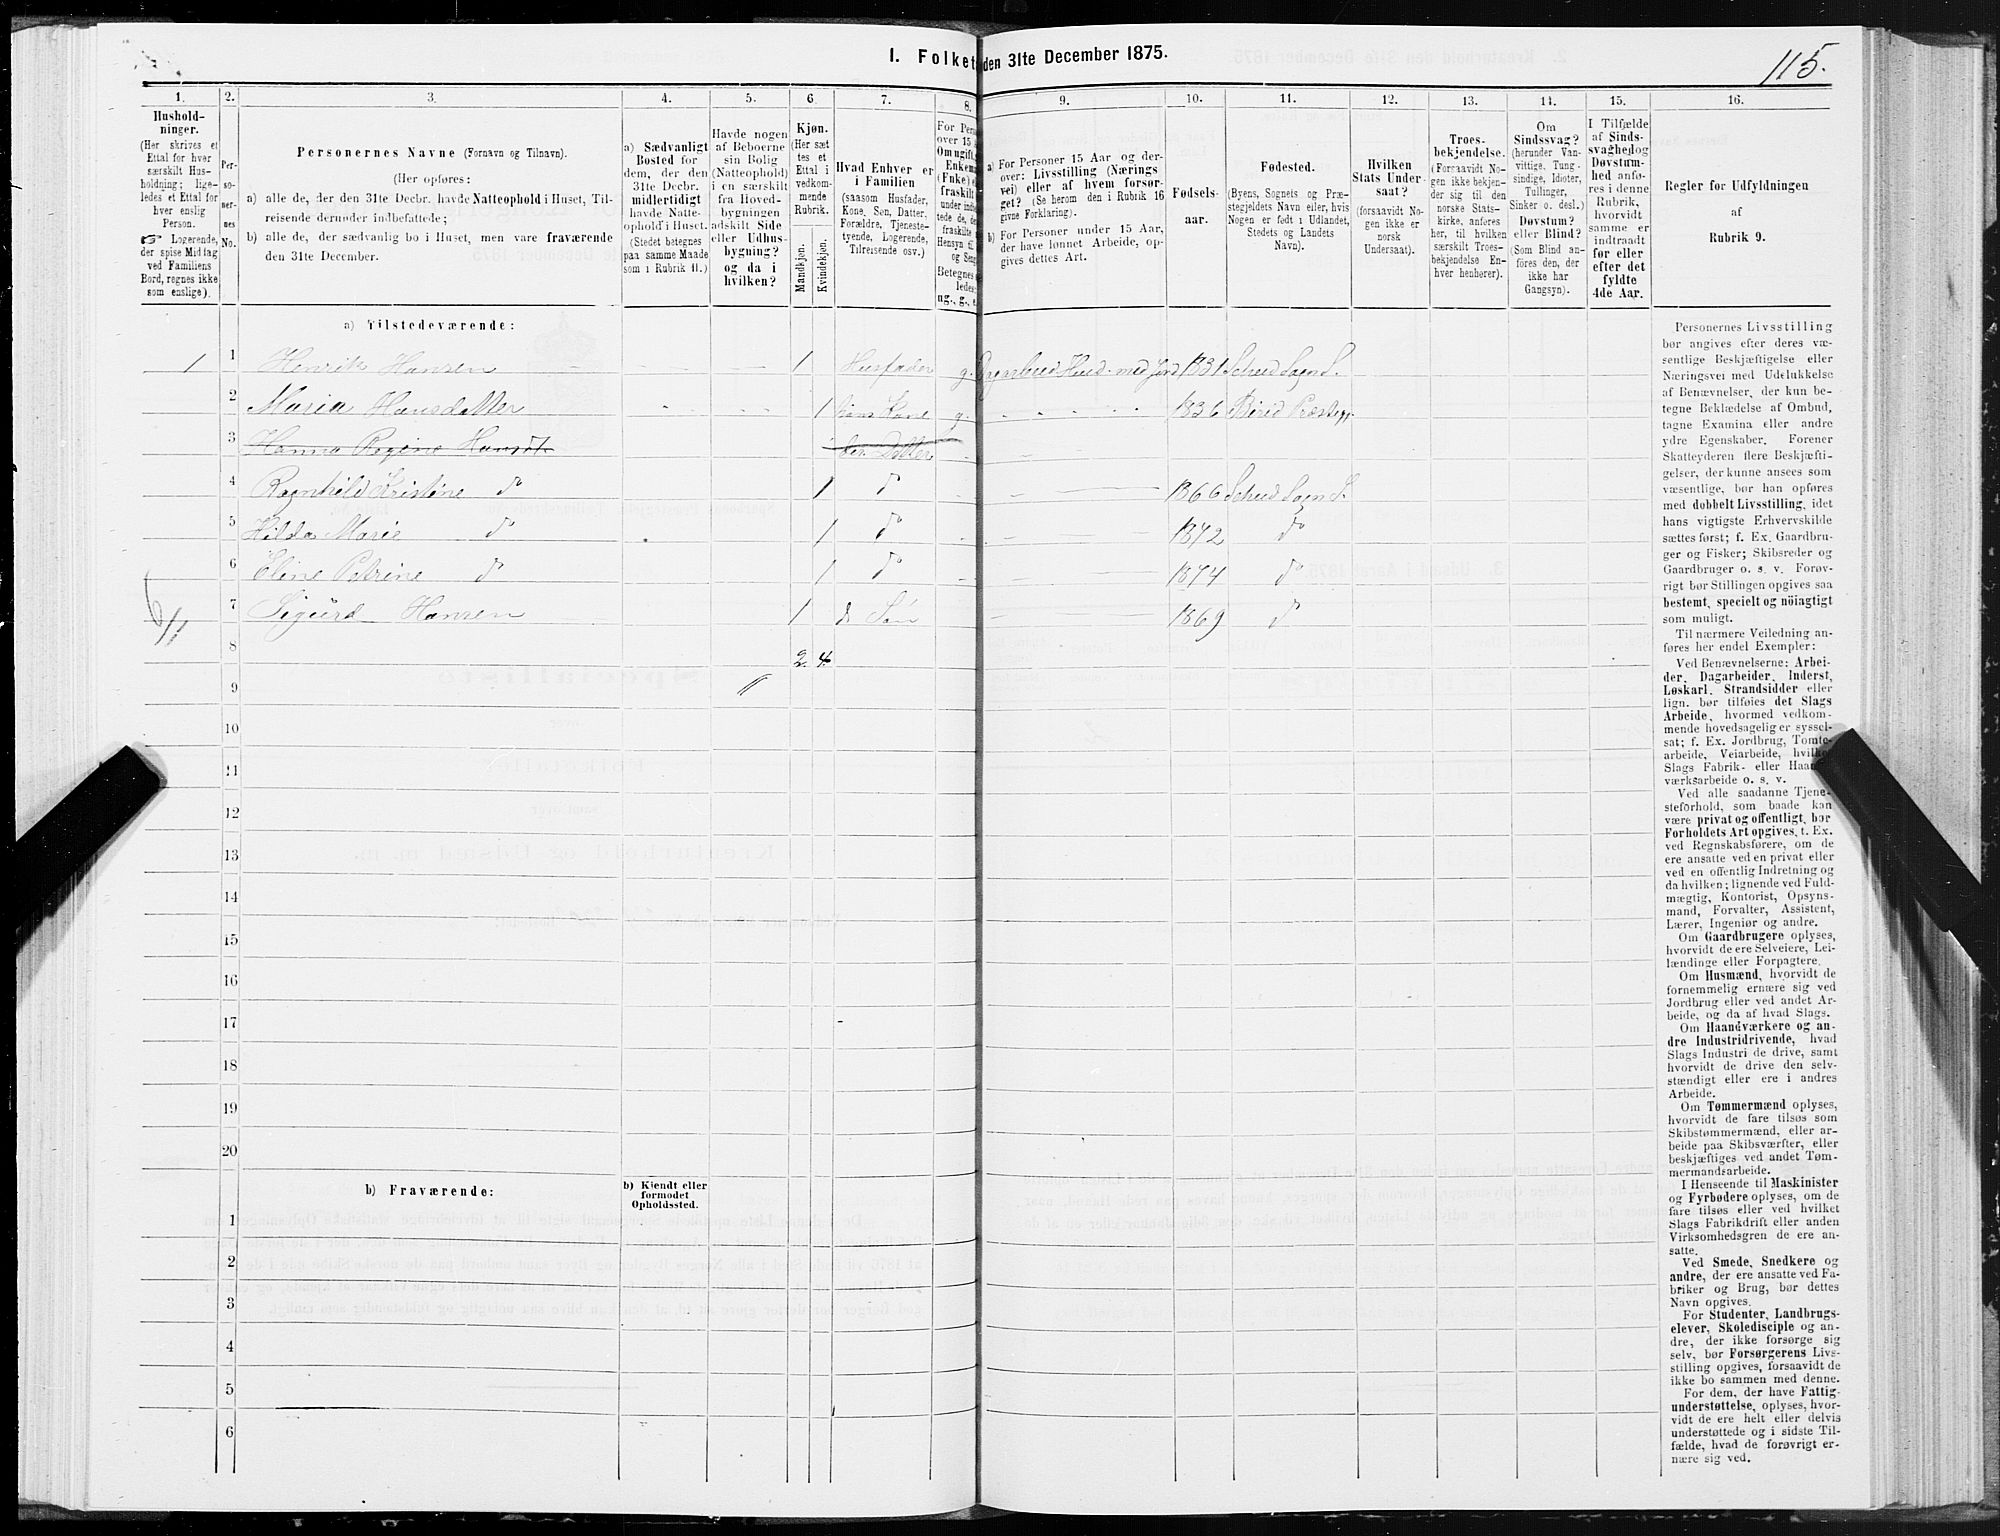 I. Folket den 31te December 1875.
115.
1. 2. 3. 4. 5. 6. 7. 8. 9. 10. 11. 12. 13. 14. 15. 16.
Hushold-
ninger.
(Her skrives et
Ettal for hver
særskilt Hus-
holdning; lige-
ledes et Ettal for
hver enslig
Person.
☞ Logerende,
der spise Middag
ved Familiens
Bord, regnes ikke
som enslige).
Per-
so-
ner-
nes
No.
Personernes Navne (Fornavn og Tilnavn).
(Her opføres:
a) alle de, der den 31te Decbr. havde Natteophold i Huset, Til-
reisende derunder indbefattede;
b) alle de, der sædvanlig bo i Huset, men vare fraværende
den 31te December.
a) Sædvanligt
Bosted for
dem, der den
31te Decbr.
midlertidigt
havde Natte-
ophold i Huset.
(Stedet betegnes
paa samme Maade
som i Rubrik 11.)
Havde nogen
af Beboerne
sin Bolig
(Natteophold)
i en særskilt
fra Hoved-
bygningen
adskilt Side
eller Udhus-
bygning?
og da i
hvilken?
Kjøn.
(Her sæt-
tes et
Ettal i
vedkom-
mende
Rubrik.
Mandkjøn.
Kvindekjøn.
Hvad Enhver er
i Familien
(saasom Husfader,
Kone, Søn, Datter,
Forældre, Tjeneste-
tyende, Logerende,
Tilreisende osv.)
For Pers
over 15 a
Om ugift,
Enkem
(Enke) e
fraskilt
a) For Personer 15 Aar og der-
over: Livsstilling (Nærings
vei) eller af hvem forsør-
get? (Se herom den i Rubrik 16
givne Forklaring).
b) For Personer under 15 Aar,
der have lønnet Arbeide, op-
gives dettes Art.
Fødsels-
aar.
Fødested.
(Byens, Sognets og Præ-
stegjeldets Navn eller, hvis
Nogen er født i Udlandet,
Stedets og Landets
Navn).
Hvilken
Stats Under-
saat?
(forsaavidt No-
gen ikke er
norsk
Undersaat).
Troes-
bekjendelse.
(Forsaavidt No-
gen ikke bekjen-
der sig til den
norske Stats-
kirke, anføres
her, til hvilken
særskilt Troes-
bekjendelse En-
hver henhører).
Om
Sindssvag?
(herunder Van-
vittige, Tung-
sindige, Idioter,
Tullinger,
Sinker o. desl.)
Døvstum?
eller Blind?
(Som Blind an-
føres den, der
ikke har
Gangsyn).
I Tilfælde
af Sinds-
svaghed og
Døvstum-
hed anfø-
res i denne
Rubrik,
hvorvidt
samme er
indtraadt
før eller
efter det
fyldte
4de Aar.
Regler for Udfyldningen
af
Rubrik 9.
a) Tilstedeværende:
1 1 Henrik Hansen 1 Husfader g. Husm. med Jord 1831
2 Maria Hansdatter 1 hans Kone g. 1836 Birid Præstegj.
3 Hanna Regine Hansdt. Datter
4 Ragnhild Kristine do 1 do 1866
5 Hilda Marie do 1 do 1872 do
6 Eline Petrine do 1 do 1874 do
7 Sigurd Hansen 1 d. Søn 1869 do
6/1
8 2 4
9
10
11
12
13
14
15
16
17
18
19
20
b) Fraværende:
b) Kjendt eller
formodet
Opholdssted.
1
2
3
4
5
6
Personernes Livsstilling
bør angives efter deres væ-
sentlige Beskjæftigelse eller
Næringsvei med Udelukkelse
af Benævnelser, der kun be-
tegne Beklædelse af Ombud,
tagne Examina eller andre
ydre Egenskaber. Forener
Skatteyderen flere Beskjæfti-
gelser, der kunne ansees som
væsentlige, bør han opføres
med dobbelt Livsstilling, idet
hans vigtigste Erhvervskilde
sættes først; f. Ex. Gaardbru-
ger og Fisker; Skibsreder og
Gaardbruger o. s. v. Forøv-
rigt bør Stillingen opgives saa
bestemt, specielt og nöiagtigt
som muligt.
Til nærmere Veiledning an-
føres her endel Exempler:
Ved Benævnelserne: Arbei-
der, Dagarbeider, Inderst,
Løskarl, Strandsidder eller
lign. bør tilføies det Slags
Arbeide, hvormed vedkom-
mende hovedsagelig er syssel-
sat; f. Ex. Jordbrug, Tomte-
arbeide, Veiarbeide, hvilket
Slags Fabrik- eller Haand-
værksarbeide o. s. v.
Ved alle saadanne Tjene-
steforhold, som baade kan
være privat og offentligt, bør
Forholdets Art opgives, t. Ex.
ved Regnskabsførere, om de
ere ansatte ved en privat eller
ved en offentlig Indretning og
da hvilken; lignende ved Fuld-
mægtig, Kontorist, Opsyns-
mand, Forvalter, Assistent,
Lærer, Ingeniør og andre.
Om Gaardbrugere oplyses,
hvorvidt de ere Selveiere, Lei-
lændinge eller Forpagtere.
Om Husmænd, hvorvidt de
fornemmelig ernære sig ved
Jordbrug eller ved andet Ar-
beide, og da af hvad Slags.
Om Haandværkere og an-
dre Industridrivende, hvad
Slags Industri de drive, samt
hvorvidt de drive den selv-
stændigt eller ere i andres
Arbeide.
Om Tømmermænd oplyses,
hvorvidt de fare tilsøs som
Skibstømmermænd, eller ar-
beide paa Skibsværfter, eller
beskjæftiges ved andet Tøm-
mermandsarbeide.
I Henseende til Maskinister
og Fyrbødere oplyses, om de
fare tilsøs eller ved hvilket
Slags Fabrikdrift eller anden
Virksomhedsgren de ere an-
satte.
Ved Smede, Snedkere og
andre, der ere ansatte ved Fa-
briker og Brug, bør dettes
Navn opgives.
For Studenter, Landbrugs-
elever, Skoledisciple og an-
dre, der ikke forsørge sig
selv, bør Forsørgerens Livs-
stilling opgives, forsaavidt de
ikke bo sammen med denne.
For dem, der have Fattig-
understøttelse, oplyses, hvor-
vidt de ere helt eller delvis
understøttede og i sidste Til-
fælde, hvad de forøvrigt er-
nære sig ved.